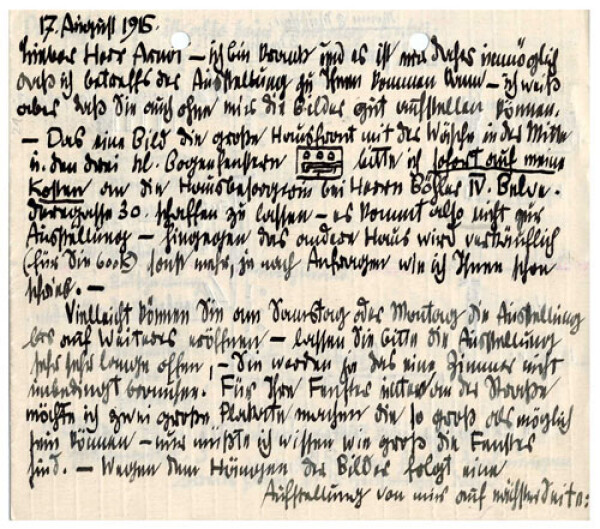 17. August 1915.
Lieber Herr Arnot – ich bin krank und es ist mir daher unmöglich
daß ich betreffs der Ausstellung zu Ihnen kommen kann – ich weiß
aber daß Sie auch ohne mir die Bilder gut aufstellen können.
– Das eine Bild die große Hausfront mit der Wäsche in der Mitte
u. den drei kl. Bogenfenstern bitte ich sofort auf meine
Kosten an die Hausbesorgerin bei Herrn Böhler IV. Belve-
deregasse 30. schaffen zu lassen – es kommt also nicht zur
Ausstellung – hingegen das andere Haus wird verkäuflich
(für Sie 600 K) sonst mehr, je nach Anfragen wie ich Ihnen schon
schrieb. –
Vielleicht können Sie am Samstag oder Montag die Ausstellung
bis auf Weiteres eröffnen – lassen Sie bitte die Ausstellung
sehr sehr lange offen, – Sie werden ja das eine Zimmer nicht
unbedingt brauchen. Für Ihre Fenster unten an der Straße
möchte ich zwei große Plakate machen die so groß als möglich
sein können – nur müßte ich wissen wie groß die Fenster
sind. – Wegen dem Hängen der Bilder folgt eine
Aufstellung von mir auf nächster Seite: